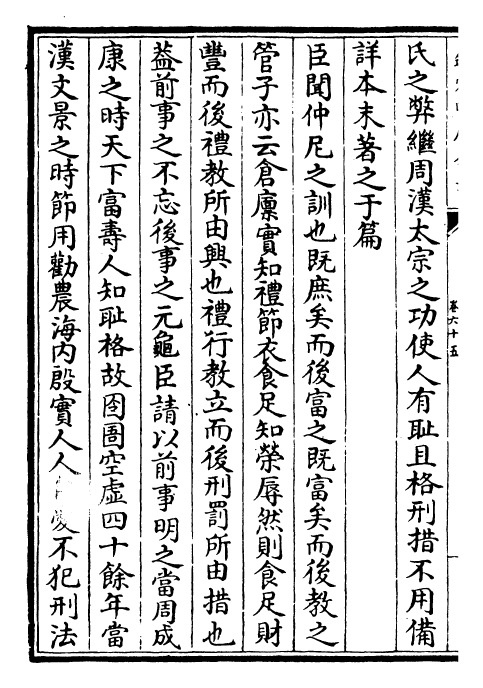 卷六十五
氏之弊繼周漢太宗之功使人有耻且格刑措不用備
詳本末著之于篇
臣聞仲尼之訓也既庶矣而後富之既富矣而後教之
管子亦云倉廪實知禮節衣食足知榮辱然則食足財
豐而後禮教所由興也禮行教立而後刑罰所由措也
葢前事之不忘後事之元龜臣請以前事明之當周成
康之時天下富壽人知耻格故囹圄空虛四十餘年當
漢文景之時節用勸農海内殷實人人愛不犯刑法